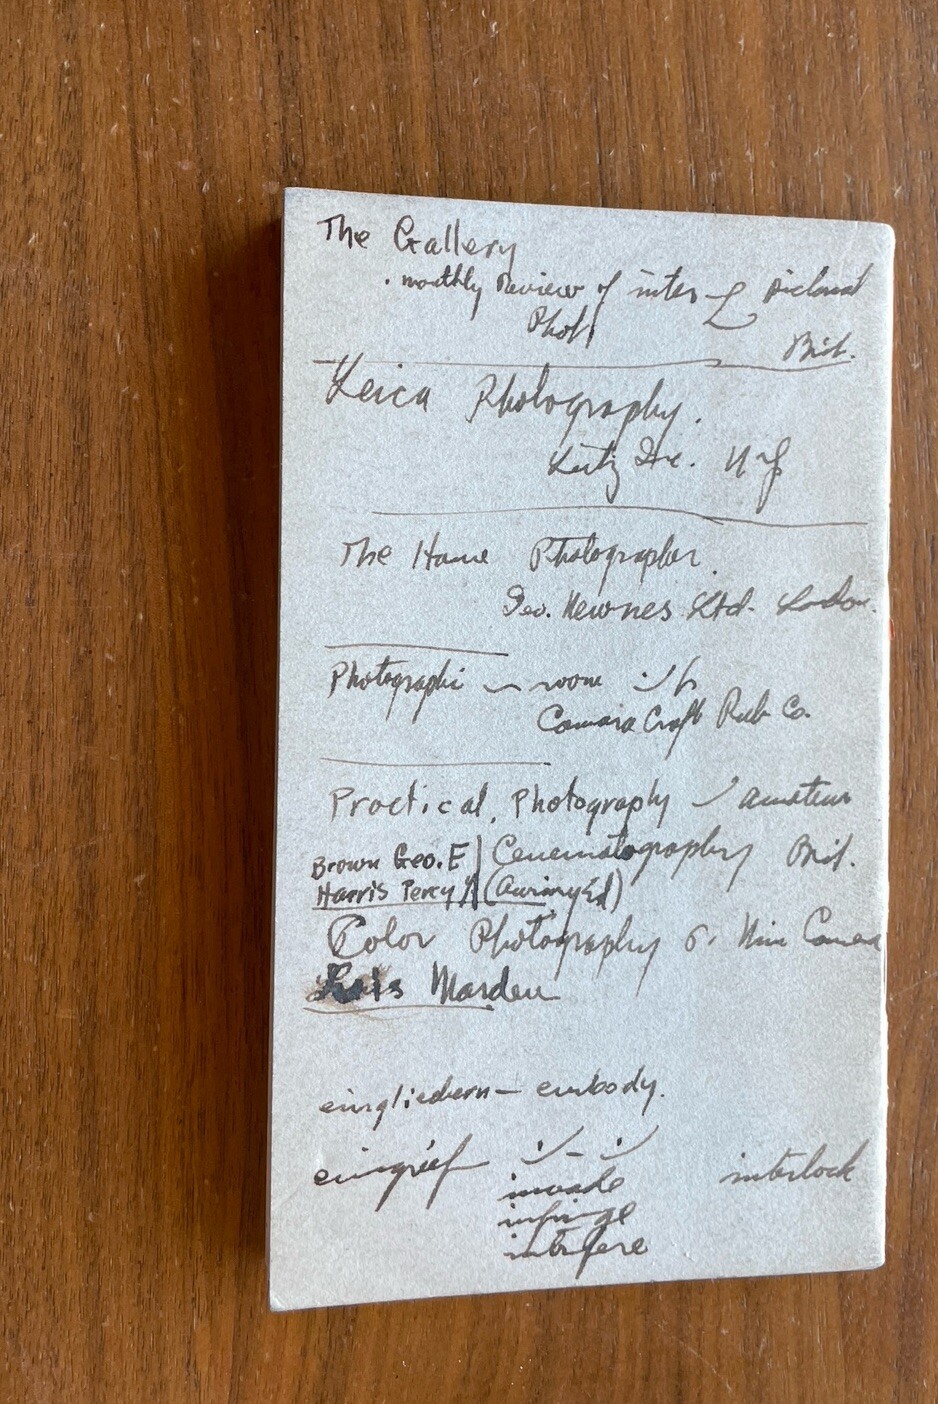 The Gallery
. monthly Review of inter pictorial
Phot
Brit.
Leica Photography.
Leitz Inc. N.Y
The Home Photographer.
Geo. Newnes Ltd. London.
Photographic room
Camera Craft Pub. Co.
Practical Photography amateur
Brown Geo. E Cenematography Brit.
Harris Percy
Color Photography Mini Camera
Luis Marden
eingliedern – embody.
eingreif interlock
invade
infringe
interfere